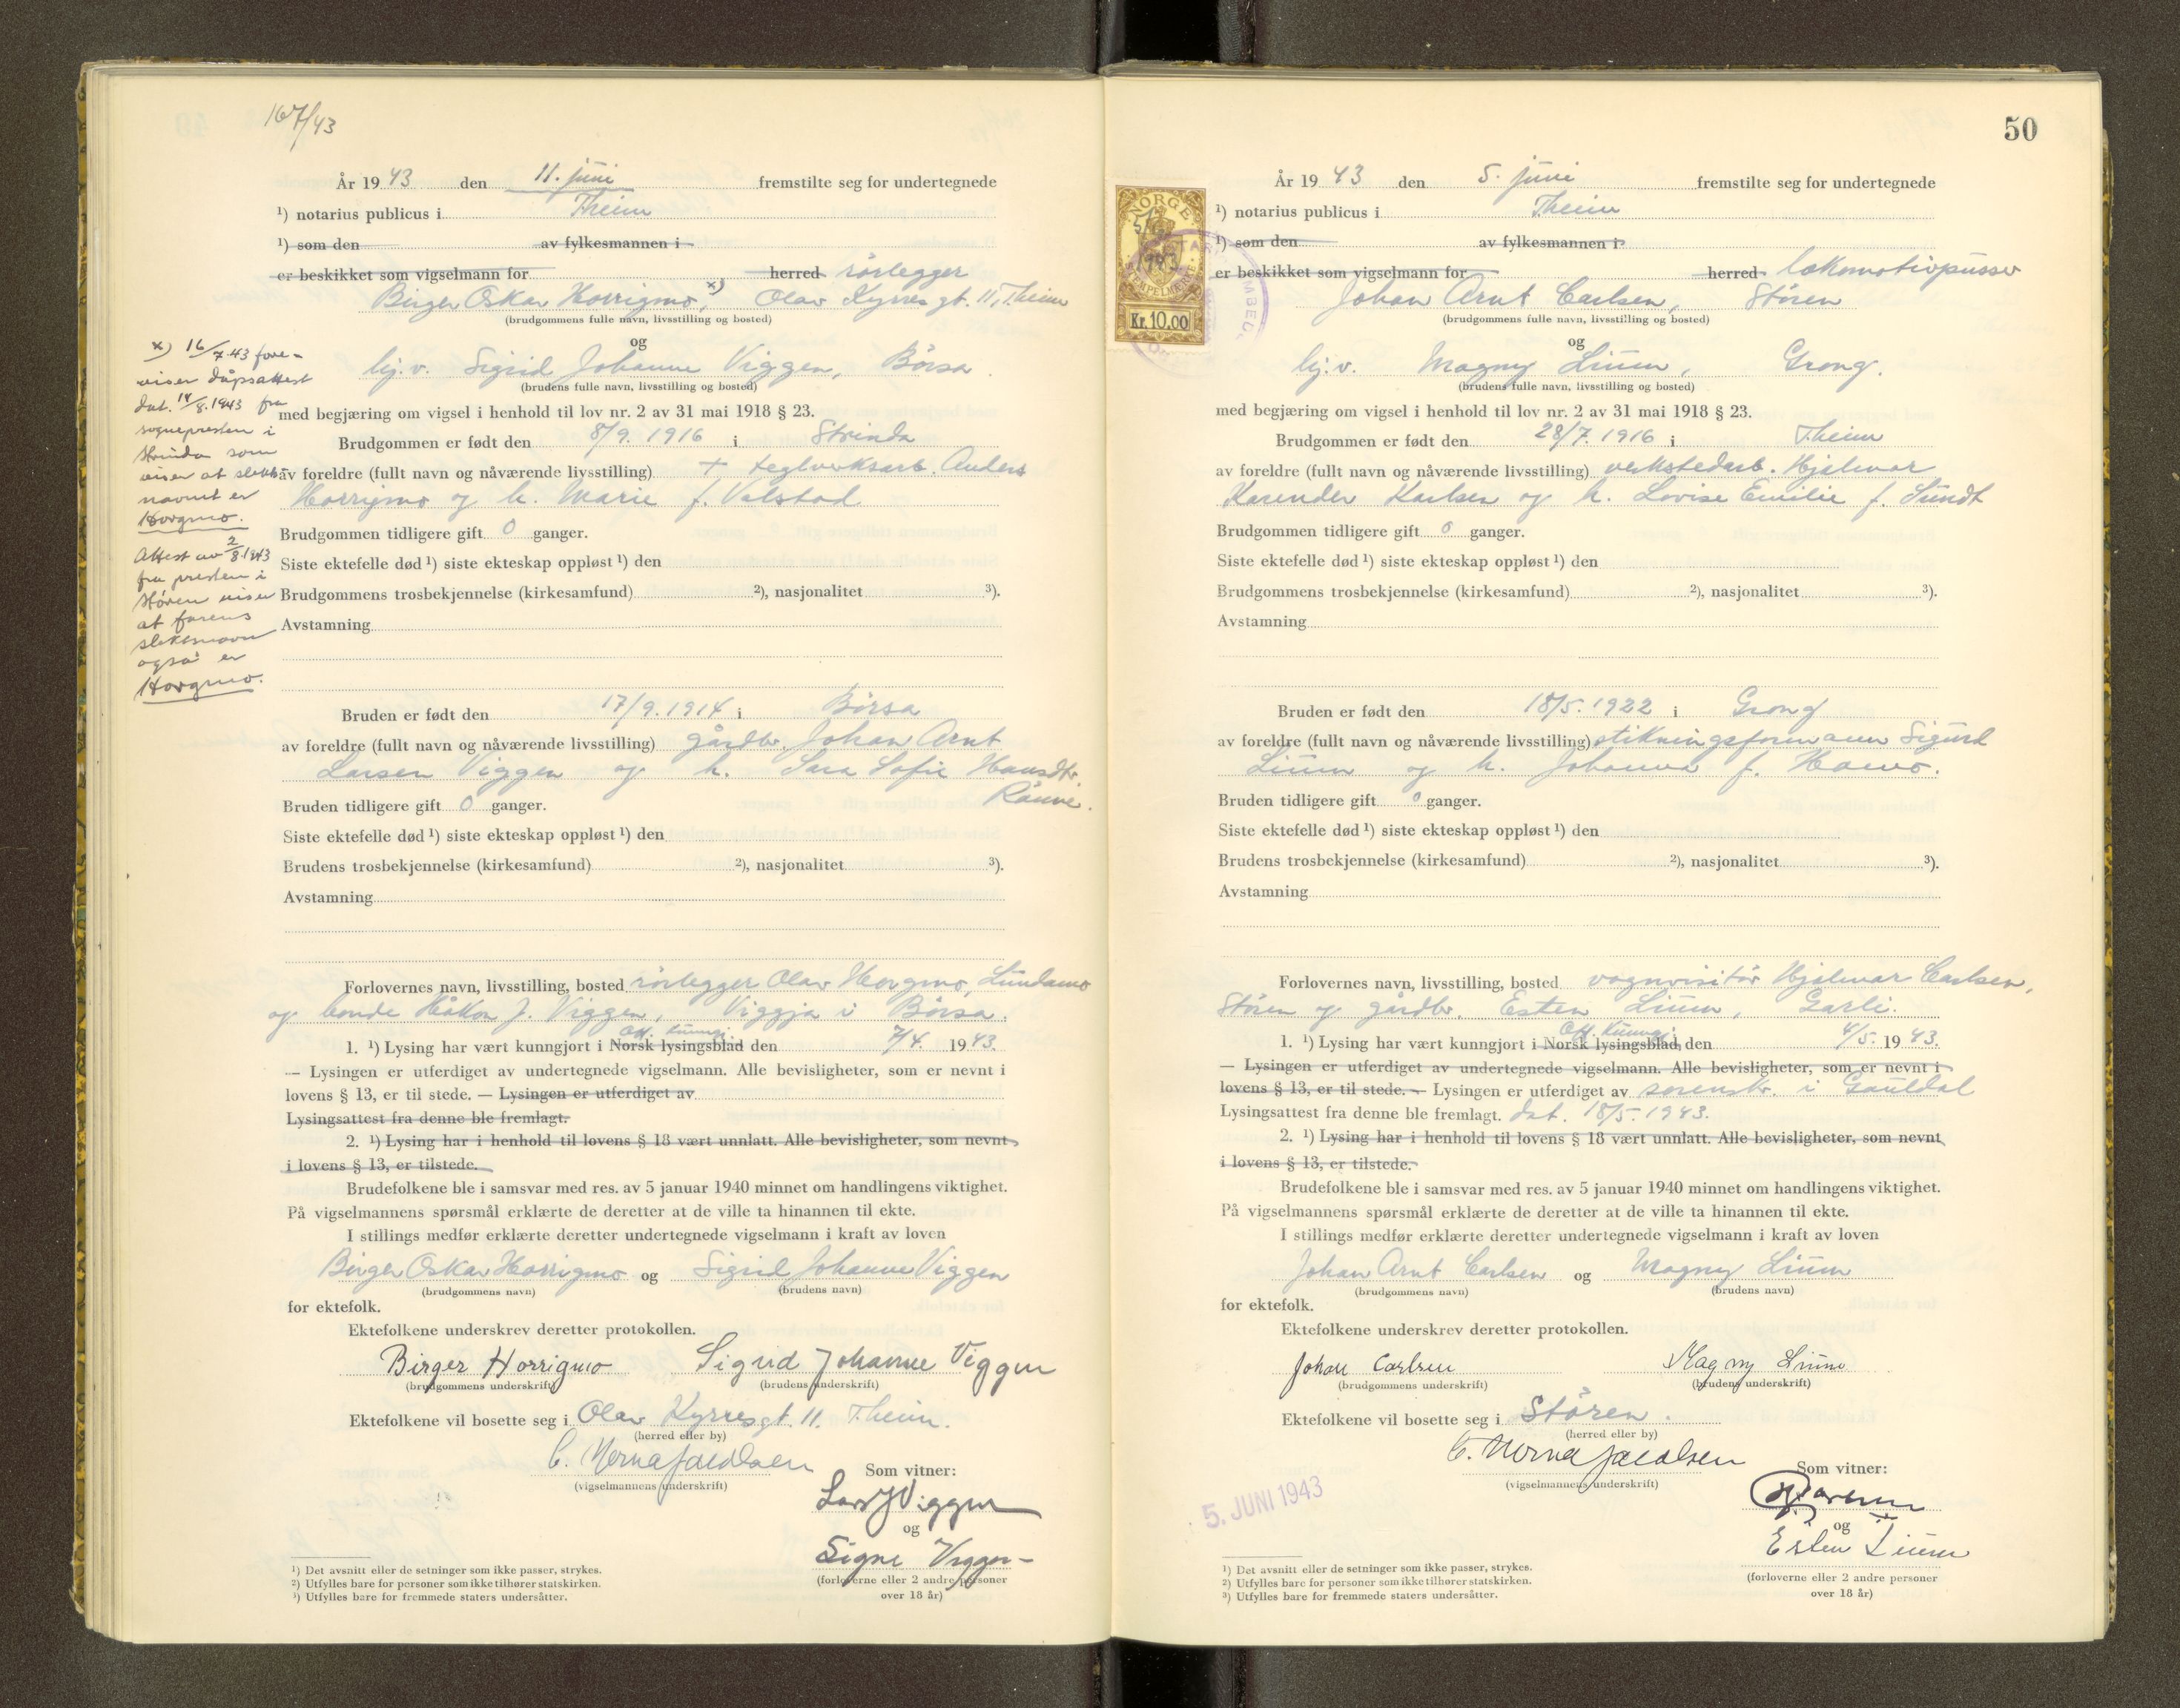 167/43
År 1943 den 11. juni fremstilte seg for undertegnede
¹) notarius publicus i Theim
¹) som den av fylkesmannen i
er beskikket som vigselmann for herred rörlegger
Birger Oskar Horrigmo, x) Olav Kyrres gt. 11, Theim
(brudgommens fulle navn, livsstilling og bosted)
og
hj.v. Sigrid Johanne Viggen, Börsa.
(brudens fulle navn, livsstilling og bosted)
med begjæring om vigsel i henhold til lov nr. 2 av 31 mai 1918 § 23.
Brudgommen er født den 8/9. 1916 i Strinda
av foreldre (fullt navn og nåværende livsstilling) + teglverksarb. Anders
Horrigmo og h. Marie f. Valstad
Brudgommen tidligere gift 0 ganger.
Siste ektefelle død ¹) siste ekteskap oppløst ¹) den
Brudgommens trosbekjennelse (kirkesamfund) ²), nasjonalitet ³).
Avstamning
x) 16/7.43 fore-
viser dåpsattest
dat. 14/8.1943 fra
sognepresten i
Strinda som
viser at slekts-
navnet er
Horgmo.
Attest av 2/8.1943
fra presten i
Stören viser
at farens
slektsnavn
også er
Horgmo.
Bruden er født den 17/9. 1914 i Börsa
av foreldre (fullt navn og nåværende livsstilling) gårdbr. Johan Arnt
Larsen Viggen og h. Sara Sofie Hansdtr.
Rånne.
Bruden tidligere gift 0 ganger.
Siste ektefelle død ¹) siste ekteskap oppløst ¹) den
Brudens trosbekjennelse (kirkesamfund) ²), nasjonalitet ³).
Avstamning
Forlovernes navn, livsstilling, bosted rörlegger Olav Horgmo, Lundamo
og bonde Håkon J. Viggen, Viggja i Börsa.
Off. kunngj.
1. ¹) Lysing har vært kunngjort i Norsk lysingsblad den 7/4. 1943.
— Lysingen er utferdiget av undertegnede vigselmann. Alle bevisligheter, som er nevnt i
lovens § 13, er til stede. — Lysingen er utferdiget av
Lysingsattest fra denne ble fremlagt.
2. ¹) Lysing har i henhold til lovens § 18 vært unnlatt. Alle bevisligheter, som nevnt
i lovens § 13, er tilstede.
Brudefolkene ble i samsvar med res. av 5 januar 1940 minnet om handlingens viktighet.
På vigselmannens spørsmål erklærte de deretter at de ville ta hinannen til ekte.
I stillings medfør erklærte deretter undertegnede vigselmann i kraft av loven
Birger Oskar Horrigmo og Sigrid Johanne Viggen
(brudgommens navn) (brudens navn)
for ektefolk.
Ektefolkene underskrev deretter protokollen.
Birger Horrigmo Sigrid Johanne Viggen
(brudgommens underskrift) (brudens underskrift)
Ektefolkene vil bosette seg i Olav Kyrresgt. 11. Theim.
(herred eller by)
(vigselmannens underskrift)
Som vitner:
Lars J Viggen
og
Signe Viggen
(forloverne eller 2 andre personer
over 18 år)
¹) Det avsnitt eller de setninger som ikke passer, strykes.
²) Utfylles bare for personer som ikke tilhører statskirken.
³) Utfylles bare for fremmede staters undersåtter.
50
NORGE
Kr. 10.00
År 1943 den 5. juni fremstilte seg for undertegnede
¹) notarius publicus i Theim
¹) som den av fylkesmannen i
er beskikket som vigselmann for herred lokomotivpusser
Johan Arnt Carlsen, Stören
(brudgommens fulle navn, livsstilling og bosted)
og
hj.v. Magny Lium, Grong.
(brudens fulle navn, livsstilling og bosted)
med begjæring om vigsel i henhold til lov nr. 2 av 31 mai 1918 § 23.
Brudgommen er født den 28/7. 1916 i Theim
av foreldre (fullt navn og nåværende livsstilling) verkstedarb. Hjalmar
Karender Karlsen og h. Lovise Emilie f. Sundt
Brudgommen tidligere gift 0 ganger.
Siste ektefelle død ¹) siste ekteskap oppløst ¹) den
Brudgommens trosbekjennelse (kirkesamfund) ²), nasjonalitet ³).
Avstamning
Bruden er født den 18/5. 1922 i Grong
av foreldre (fullt navn og nåværende livsstilling) stikningsformann Sigurd
Lium og h. Johanna f. Hamo.
Bruden tidligere gift 0 ganger.
Siste ektefelle død ¹) siste ekteskap oppløst ¹) den
Brudens trosbekjennelse (kirkesamfund) ²), nasjonalitet ³).
Avstamning
Forlovernes navn, livsstilling, bosted vognvisitör Hjalmar Carlsen,
Stören og gårdbr. Esten Lium, Garli.
Off. kunngj.
1. ¹) Lysing har vært kunngjort i Norsk lysingsblad, den 4/5. 1943.
— Lysingen er utferdiget av undertegnede vigselmann. Alle bevisligheter, som er nevnt i
lovens § 13, er til stede. — Lysingen er utferdiget av sorenskr. i Gauldal
Lysingsattest fra denne ble fremlagt. dat. 18/5. 1943.
2. ¹) Lysing har i henhold til lovens § 18 vært unnlatt. Alle bevisligheter, som nevnt
i lovens § 13, er tilstede.
Brudefolkene ble i samsvar med res. av 5 januar 1940 minnet om handlingens viktighet.
På vigselmannens spørsmål erklærte de deretter at de ville ta hinannen til ekte.
I stillings medfør erklærte deretter undertegnede vigselmann i kraft av loven
Johan Arnt Carlsen og Magny Lium
(brudgommens navn) (brudens navn)
for ektefolk.
Ektefolkene underskrev deretter protokollen.
Johan Carlsen Magny Lium
(brudgommens underskrift) (brudens underskrift)
Ektefolkene vil bosette seg i Stören.
(herred eller by)
(vigselmannens underskrift)
5. JUNI 1943
Som vitner:
og
Esten Lium
(forloverne eller 2 andre personer
over 18 år)
¹) Det avsnitt eller de setninger som ikke passer, strykes.
²) Utfylles bare for personer som ikke tilhører statskirken.
³) Utfylles bare for fremmede staters undersåtter.